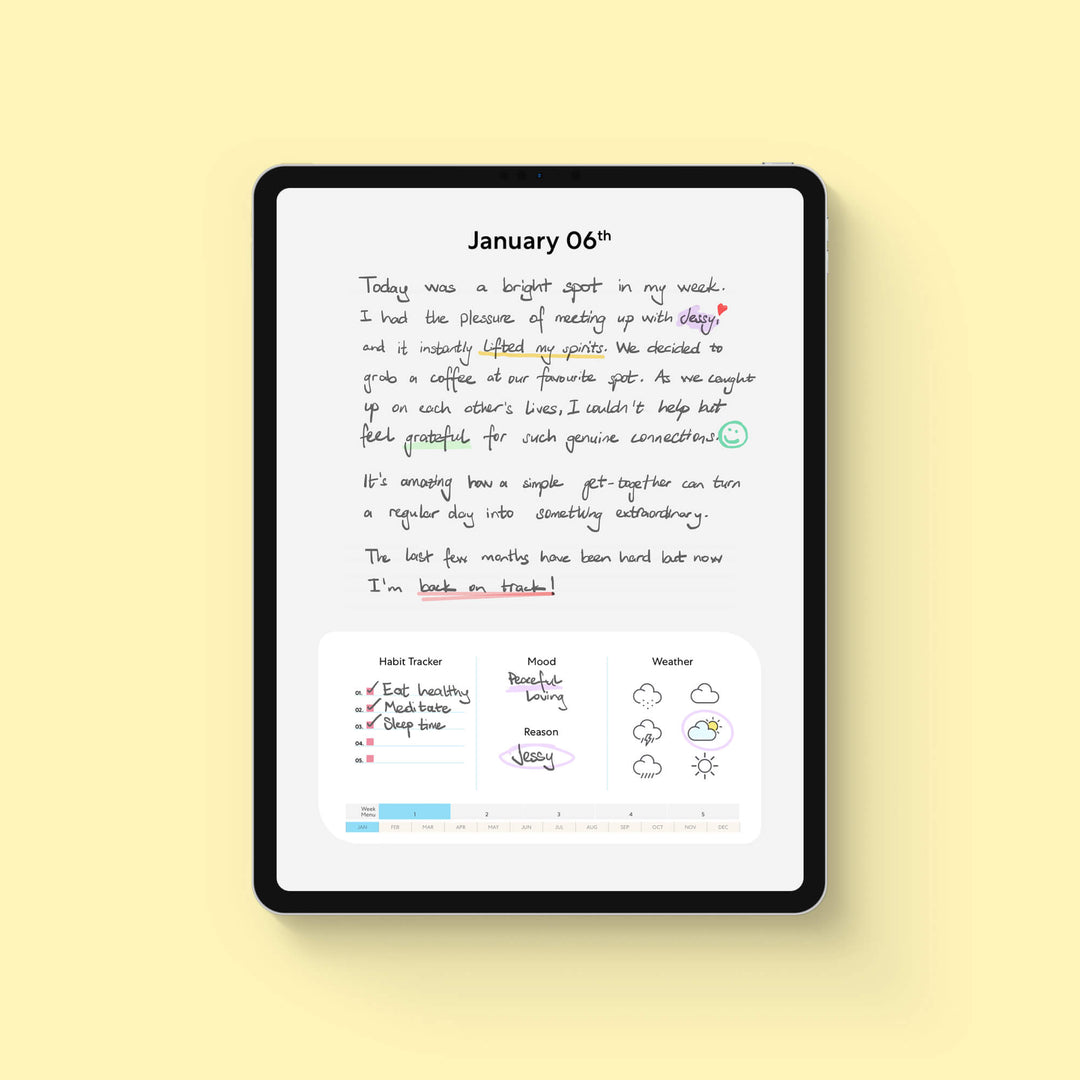 January 06th
Today was a bright spot in my week.
I had the plessure of meeting up with Jessy,
and it instantly lifted my spirits. We decided to
grab a coffee at our favourite spot. As we caught
up on each other's lives, I couldn't help but
feel grateful for such genuine connections.
It's amazing how a simple get-together can turn
a regular day into something extraordinary.
The last few months have been hard but now
I'm back on track!
Habit Tracker
01. Eat healthy
02. Meditate
03. Sleep time
04.
05.
Mood
Peaceful
Loving
Reason
Jessy
Weather
Week
Menu
1 2 3 4 5
JAN FEB MAR APR MAY JUN JUL AUG SEP OCT NOV DEC